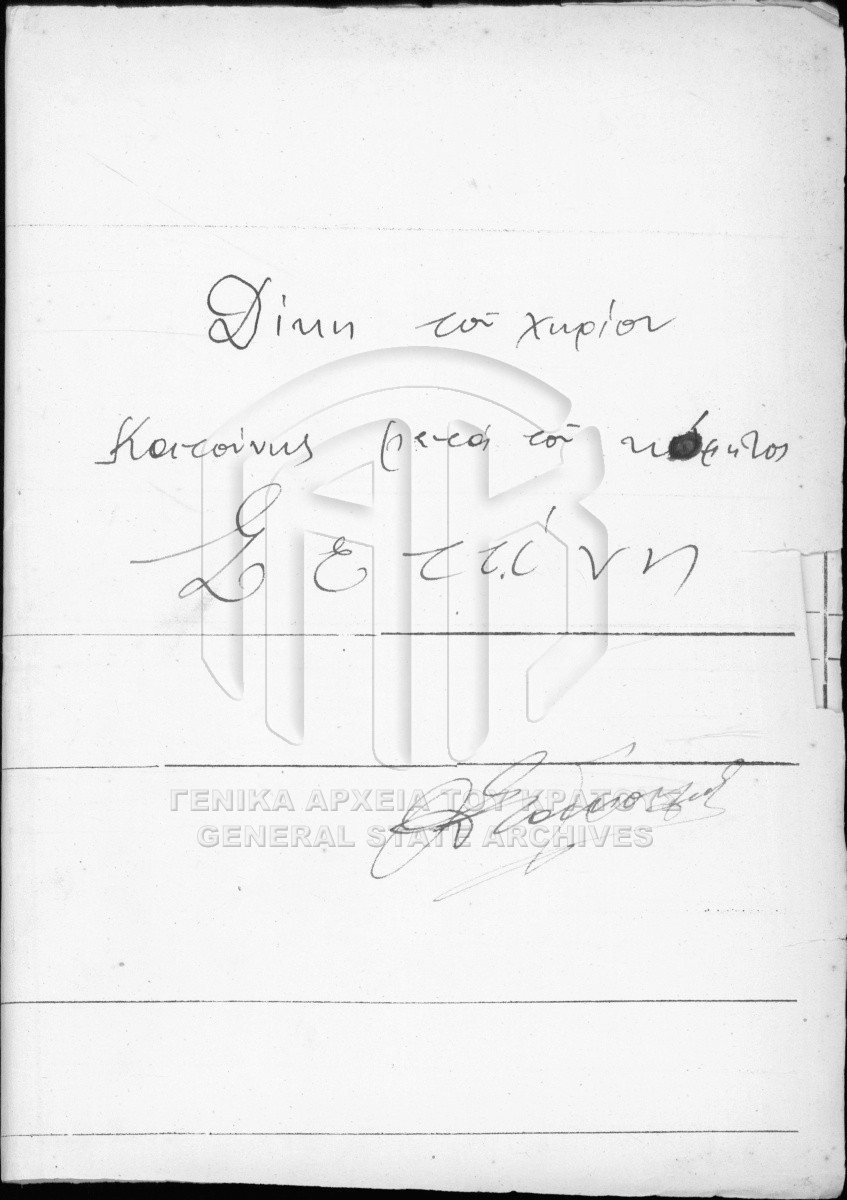 Δίκη τοῦ χωρίου
Κατούνης μετά τοῦ κόμητος
Σεττίνη
ΓΕΝΙΚΑ ΑΡΧΕΙΑ ΤΟΥ ΚΡΑΤΟΥΣ
GENERAL STATE ARCHIVES